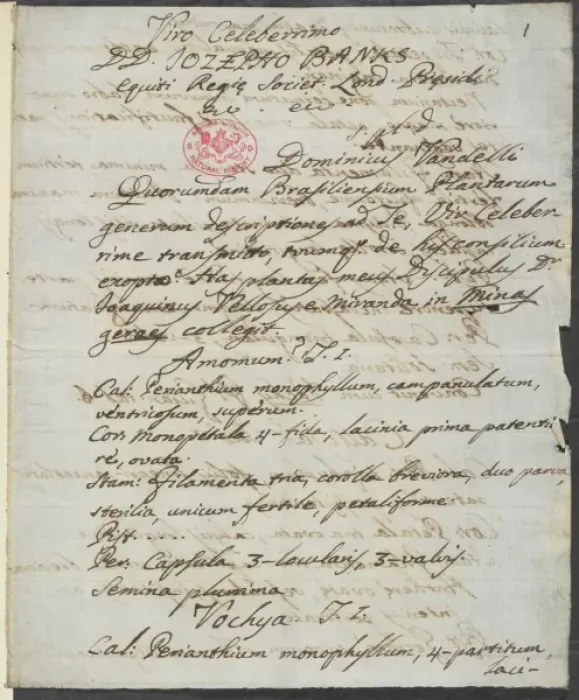 1
Viro Celeberrimo
DD. JOZEPHO BANKS
Equiti Regię Societ. Lond. Presidi
etc.
BRITISH MUSEUM
NATURAL HISTORY
Dominicus Vandelli
Quorumdam Brasiliensium Plantarum
generum descriptiones ad Te, Vir Celeber
rime transmitto, tuumq. de his consilium
exopto. Has plantas meus Discipulus Dr
Joaquinus Vellosus e Miranda in Minas
geraes collegit.
Amomum. T. I.
Cal: Perianthium monophyllum, campanulatum,
ventricosum, superum.
Cor: Monopetala 4-fida, lacinia prima patenti
re, ovata.
Stam: Filamenta tria, corolla breviora, duo parva,
sterilia, unicum fertile, petaliforme.
Pist. ...
Per. Capsula 3-locularis, 3-valvis.
Semina plurima
Vochya T. I.
Cal: Perianthium monophyllum, 4-partitum,
laci-